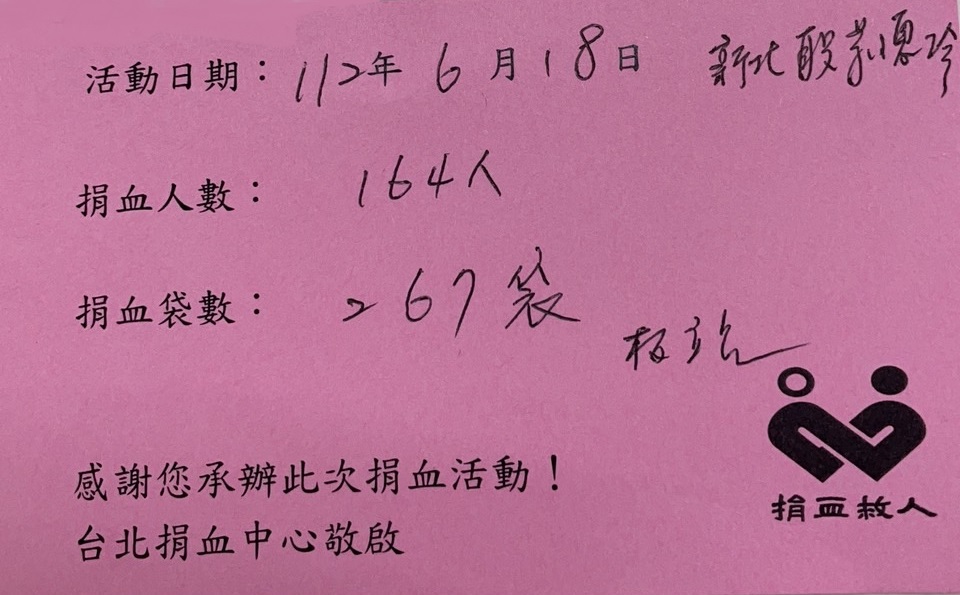 活動日期：112年 6月18日 新北
捐血人數： 164人
捐血袋數： 267袋
板
捐血救人
感謝您承辦此次捐血活動！
台北捐血中心敬啟